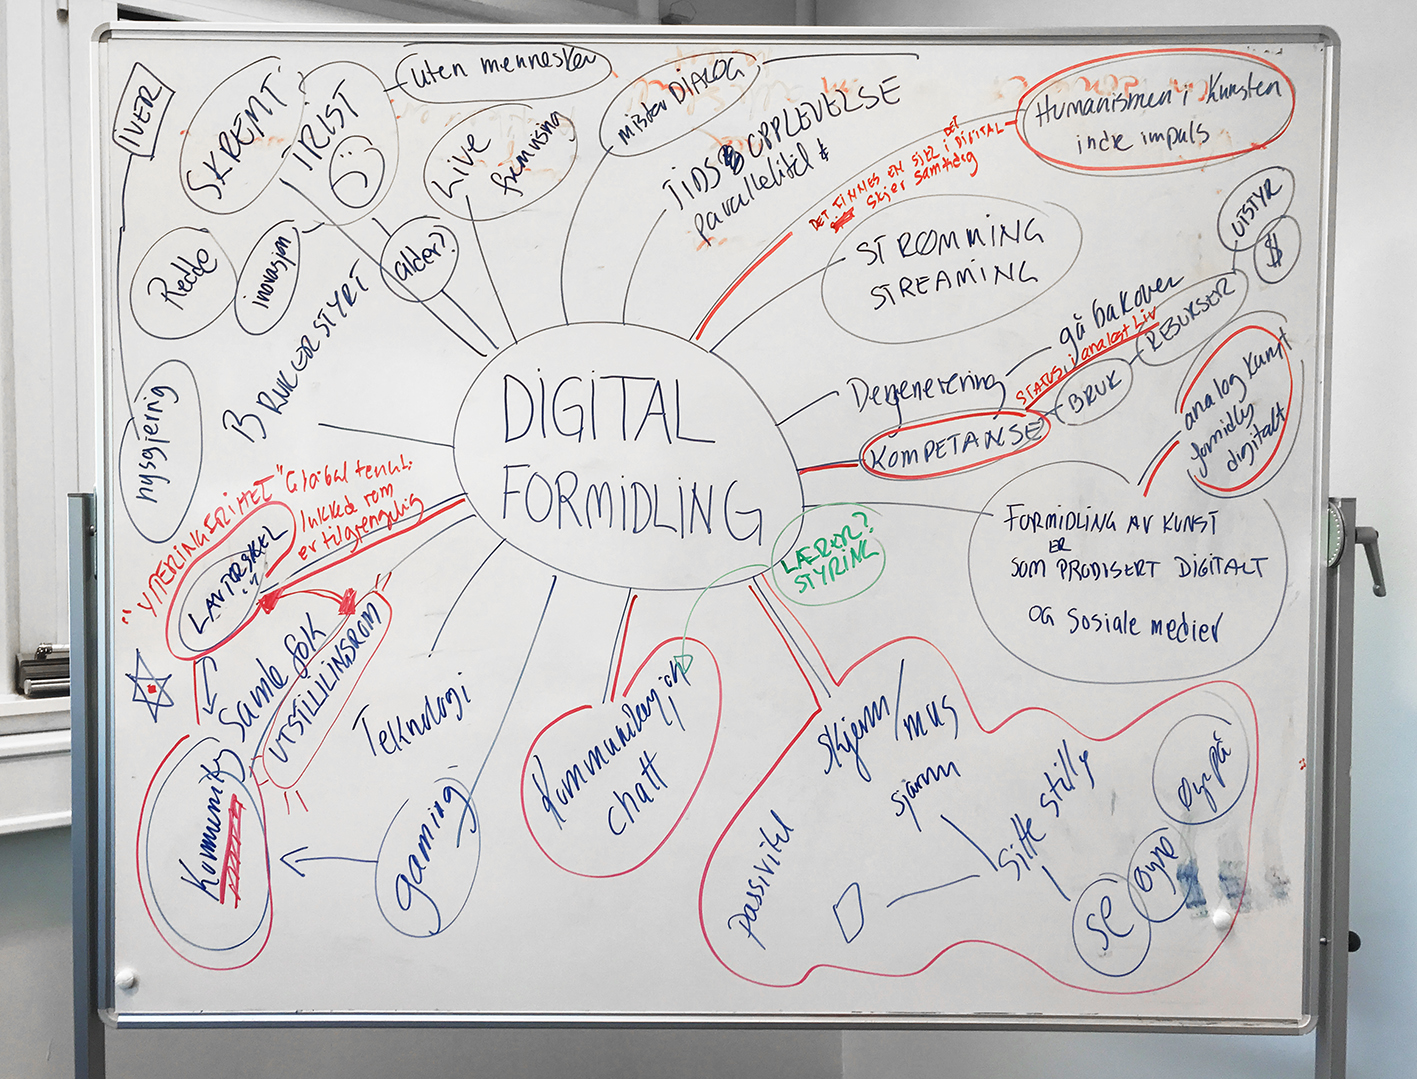 IVER
SKREMT
TRIST
uten mennesker
Live
fremvisning
mister DIALOG
TIDSOPPLEVELSE
parallelitet
DET FINNES EN SJEL I DET DIGITALE
skjer samtidig
Humanismen i kunsten
indre impuls
Redde
inovasjon
alder?
BRUKERSTYRT
nysgjerrig
STRØMMING
STREAMING
UTSTYR
$
RESURSER
BRUK
gå bakover
STATUS i analogt liv
Degenerering
KOMPETANSE
analog kunst
formidles
digitalt
DIGITAL
FORMIDLING
FORMIDLING AV KUNST
SOM ER PRODISERT DIGITALT
OG Sosiale medier
LÆRER?
STYRING
"YTERINGSFRIHET"
"Global
lukked rom
er tilgjengelig
LAVTERSKEL
!!
Samle folk
UTSTILLINGSROM
!!
Kommunity
Teknologi
gaming
Kommunikasjon
chatt
skjerm/
mus
passivitet
sitte stille
se
øyne
Øyr på